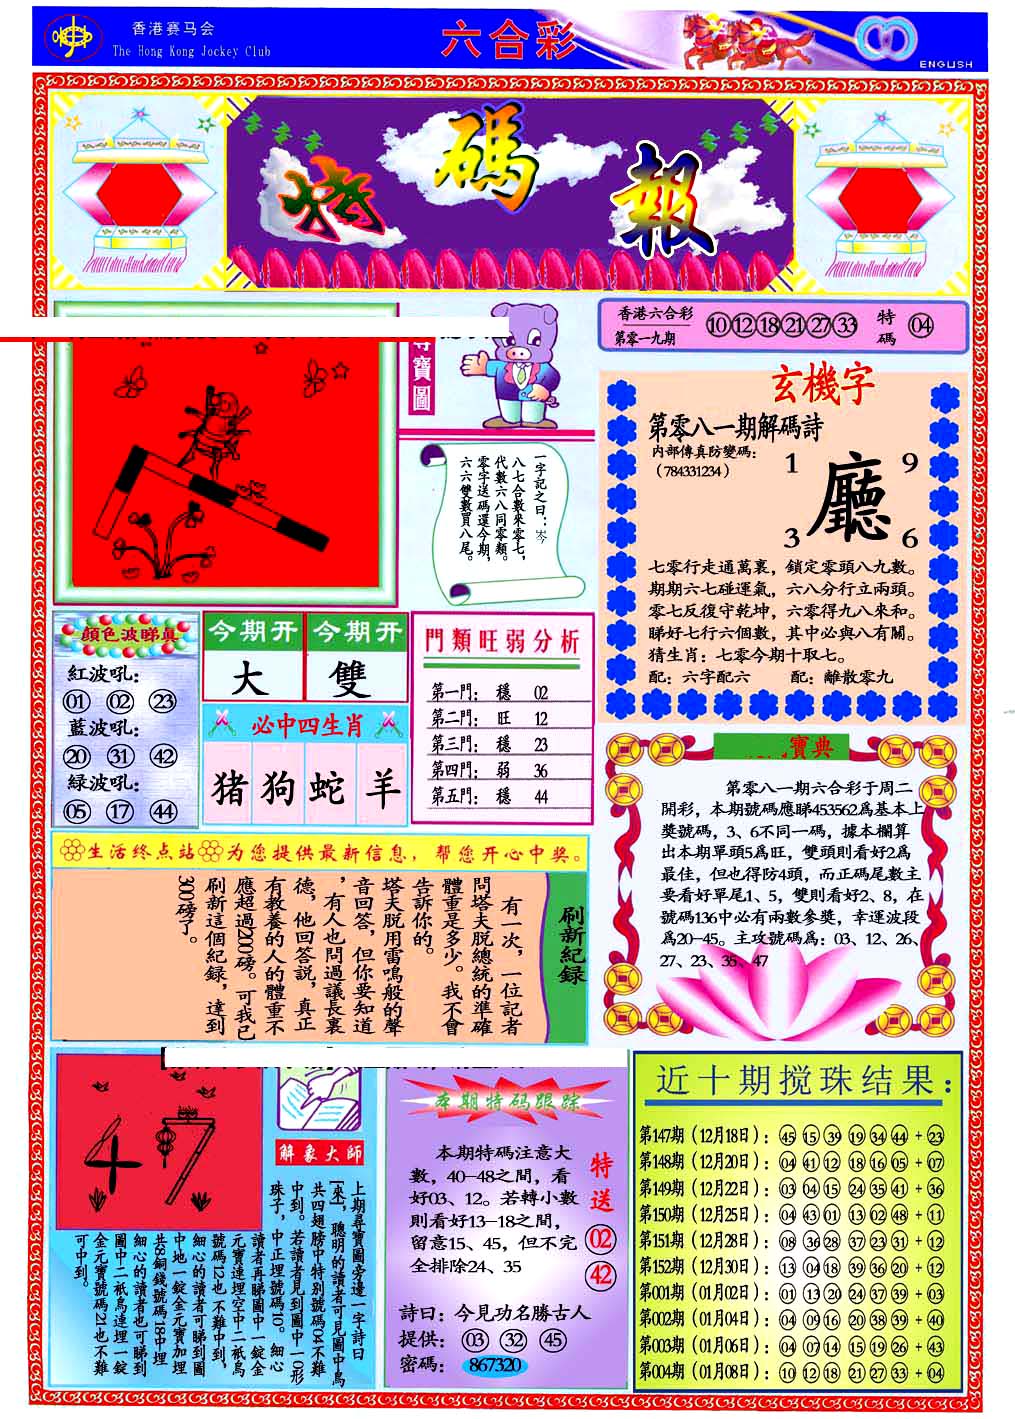 香港赛马会
The Hong Kong Jockey Club
六合彩
ENGLISH
特碼報
寶圖
香港六合彩
第零一九期
10 12 18 21 27 33
特碼
04
一字記之曰：岑
八七合數來零七，
代數六八同零類。
零字送碼還今期，
六六雙數買八尾。
玄機字
第零八一期解碼詩
内部傳真防變碼：
（784331234）
1 9
廳
3 6
七零行走通萬裏，鎖定零頭八九數。
期期六七碰運氣，六八分行立兩頭。
零七反復守乾坤，六零得九八來和。
睇好七行六個數，其中必與八有關。
猜生肖：七零今期十取七。
配：六字配六 配：離散零九
顔色波睇真
紅波吼：
01 02 23
藍波吼：
20 31 42
緑波吼：
05 17 44
今期开 今期开
大 雙
必中四生肖
猪 狗 蛇 羊
門類旺弱分析
第一門： 穩 02
第二門： 旺 12
第三門： 穩 23
第四門： 弱 36
第五門： 穩 44
寶典
第零八一期六合彩于周二
開彩，本期號碼應睇453562爲基本上
獎號碼，3、6不同一碼，據本欄算
出本期單頭5爲旺，雙頭則看好2爲
最佳，但也得防4頭，而正碼尾數主
要看好單尾1、5，雙則看好2、8，在
號碼136中必有兩數參獎，幸運波段
爲20-45。主攻號碼爲：03、12、26、
27、23、35、47
生活终点站 为您提供最新信息，帮您开心中奖。
刷新紀録
有一次，一位記者
問塔夫脱總統的準確
體重是多少。我不會
告訴你的。
塔夫脱用雷鳴般的聲
音回答，但你要知道
，有人也問過議長裏
德，他回答説，真正
有教養的人的體重不
應超過200磅。可我已
刷新這個紀録，達到
300磅了。
47
解象大師
上期尋寶圖旁邊一字詩曰
[來]，聰明的讀者可見圖中鳥
共四翅膀中特別號碼04不難
中到。若讀者見到圖中一〇形
珠子，中正埋號碼10。細心
讀者再睇圖中一錠金
元寶連埋空中二祇鳥
號碼12也不難中到，
細心的讀者可睇到圖
中地一錠金元寶加埋
共8銅錢號碼18中埋
細心的讀者也可睇到
圖中二祇鳥連埋一錠
金元寶號碼21也不難
可中到。
本期特码跟踪
本期特碼注意大
數，40-48之間，看
好03、12。若轉小數
則看好13-18之間，
留意15、45，但不完
全排除24、35
特送
02
42
詩曰：今見功名勝古人
提供：03 32 45
密碼：867320
近十期搅珠结果：
第147期（12月18日）：45 15 39 19 34 44 + 23
第148期（12月20日）：04 41 12 18 16 05 + 07
第149期（12月22日）：03 04 15 24 35 41 + 36
第150期（12月25日）：04 43 01 13 02 48 + 11
第151期（12月28日）：08 36 28 37 23 31 + 12
第152期（12月30日）：13 04 18 39 36 20 + 12
第001期（01月02日）：01 13 20 24 37 39 + 03
第002期（01月04日）：04 09 16 20 38 39 + 40
第003期（01月06日）：04 07 14 15 19 26 + 43
第004期（01月08日）：10 12 18 21 27 33 + 04